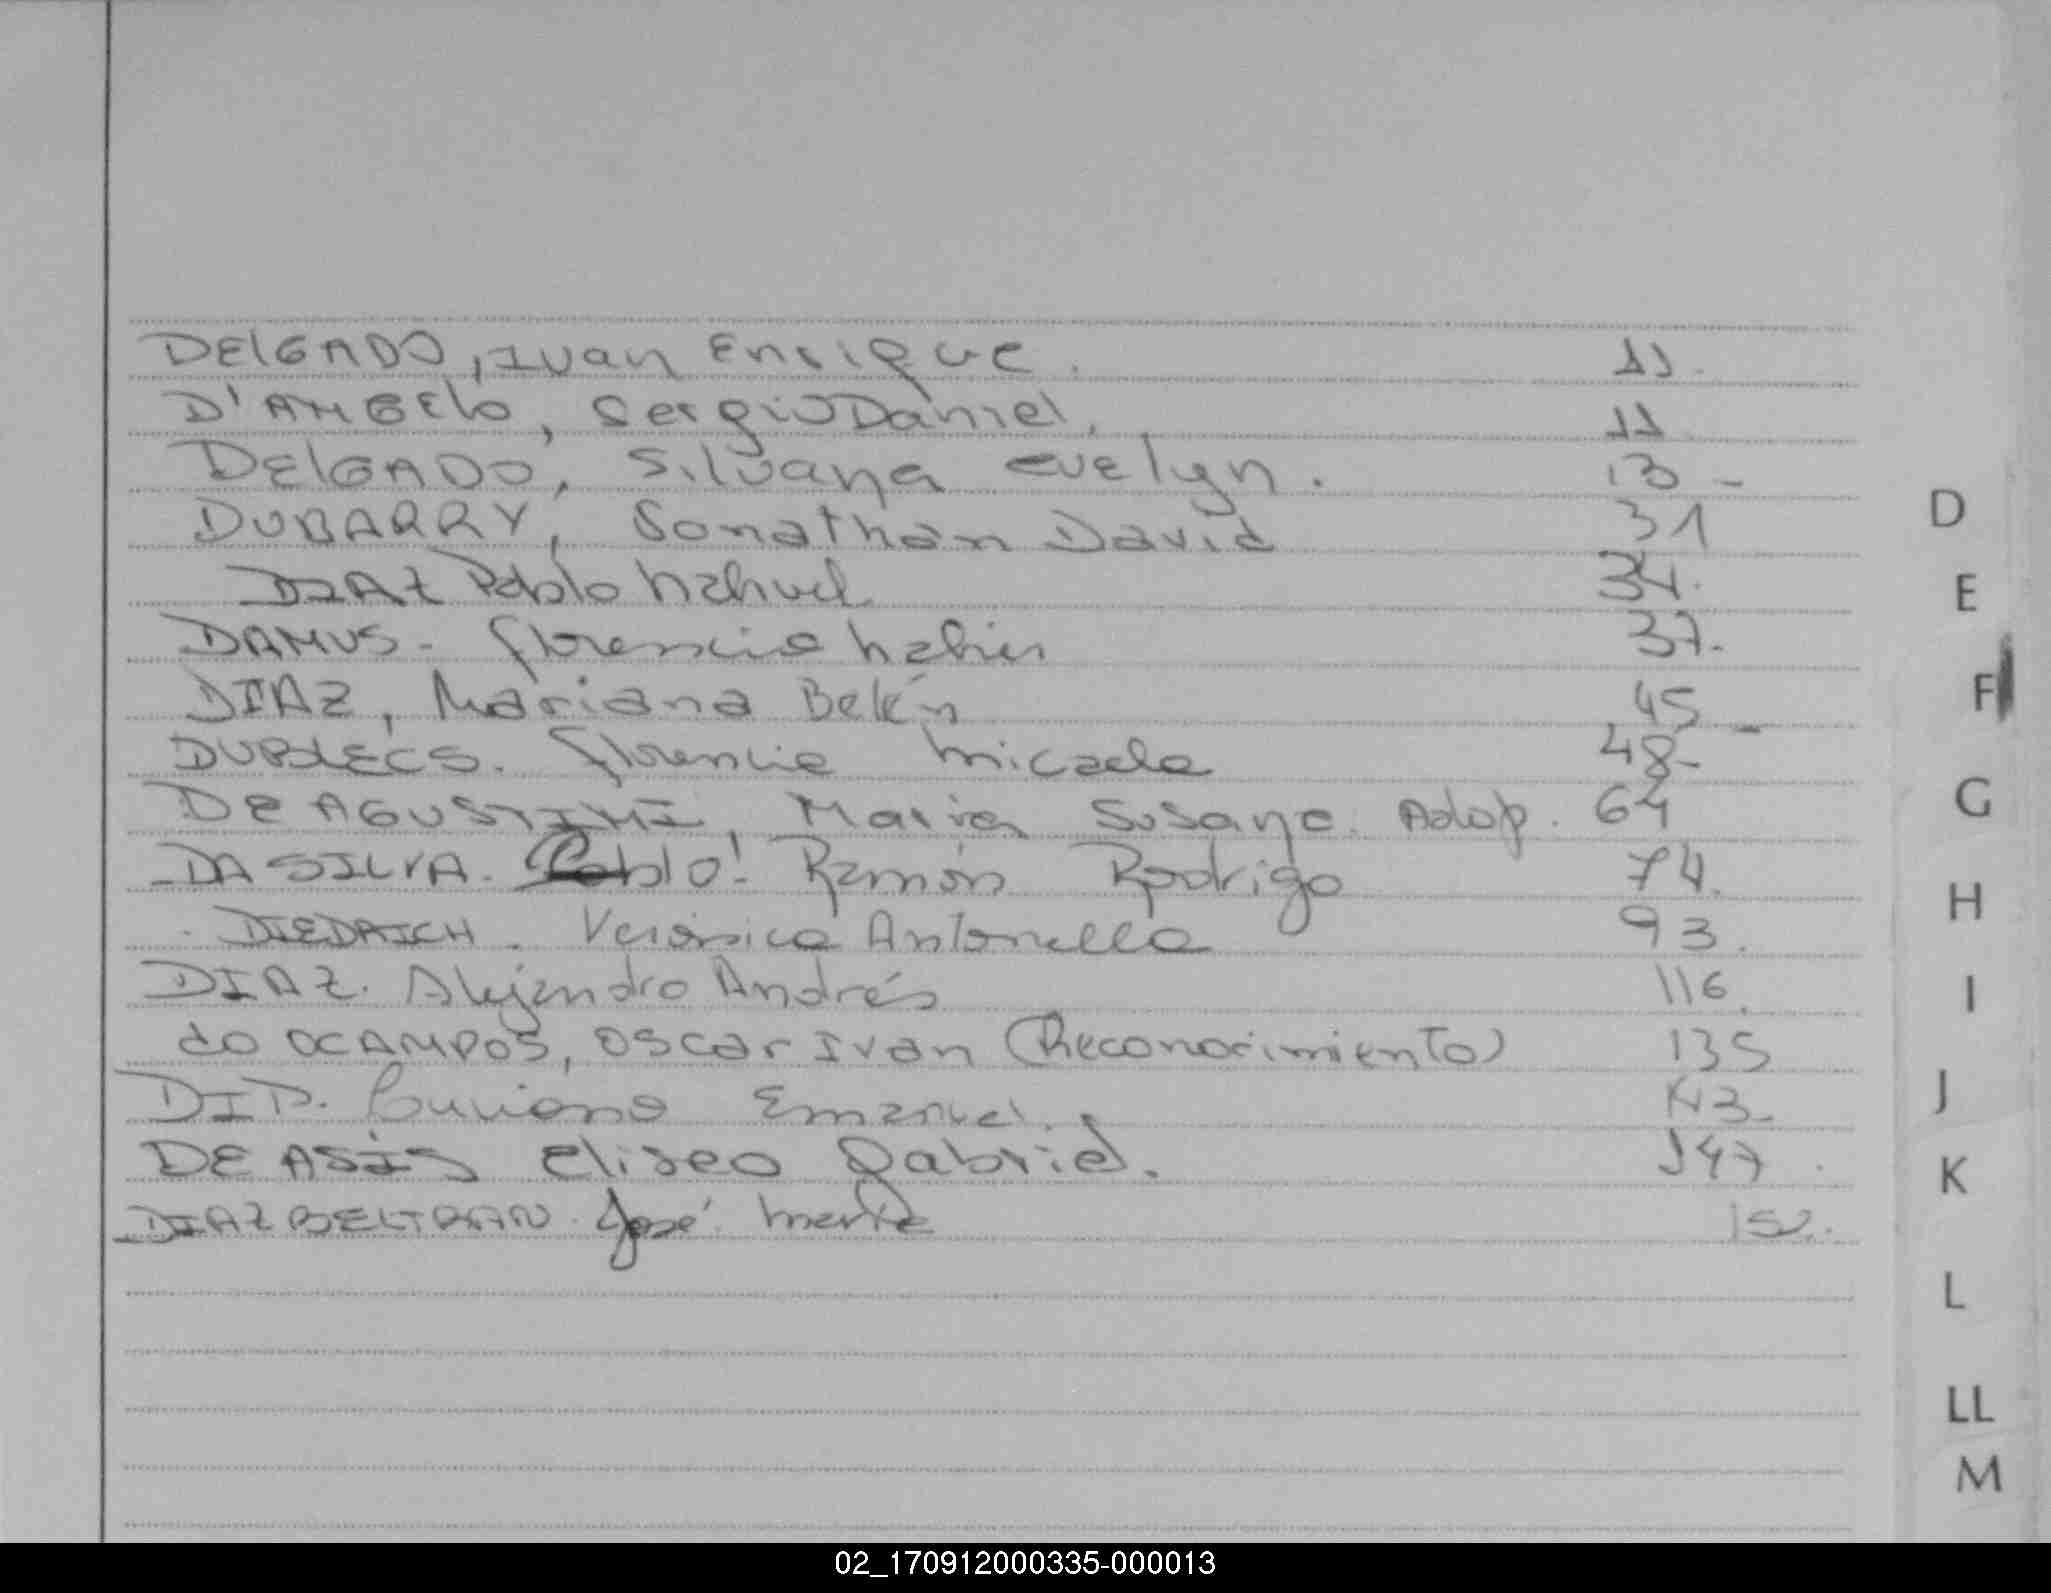 DELGADO, Ivan Enrique. 11.
D'ANGELO, Sergio Daniel. 11
DELGADO, Silvana Evelyn. 13 -
DUBARRY, Jonathan David 31
DIAZ Pablo Nahuel 34.
DAMUS - Florencia 37.
DIAZ, Mariana Belén 45 -
Florencia Micaela 48-
DE AGUSTINI, Maria Susana. Adop. 64
DA SILVA. Pablo! Ramón Rodrigo 74.
DIEDRICH. Verónica Antonella 93.
DIAZ. Alejandro Andrés 116.
do OCAMPOS, OSCAR IVAN (Reconocimiento) 135
DIP. Emanuel. 143-
DE ASÍS Eliseo Gabriel. 147.
DIAZ BELTRAN. José María 152.
D
E
F
G
H
I
J
K
L
LL
M
02_170912000335-000013